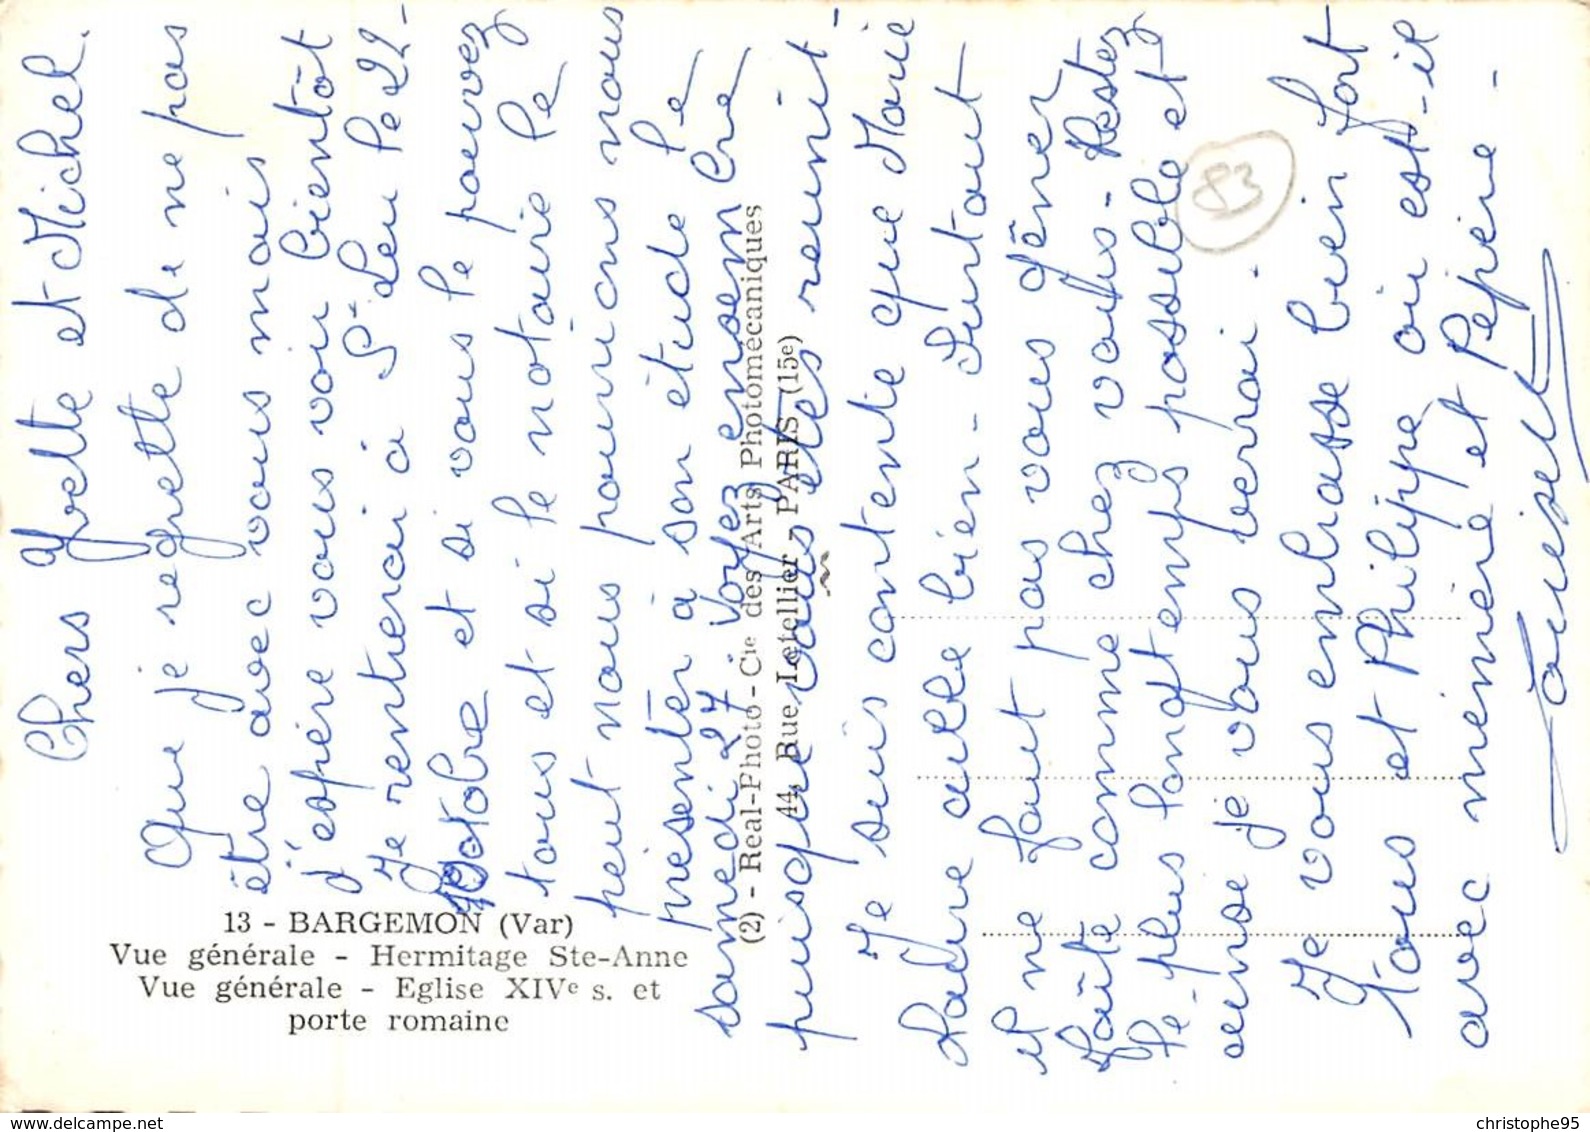 Chers Yvette et Michel.
Que je regrette de ne pas
être avec vous mais
j'espère vous voir bientôt
Je rentrerai à St Leu le 22-
octobre et si vous le pouvez
tous et si le notaire le
peut nous pourrions nous
présenter à son étude le
samedi 27. Voyez ensem ble
puisque vous êtes reunit -
Je suis contente que Marie
Laure aille bien - Surtout
il ne faut pas vous gêner
faîte comme chez vous - Restez
le plus longtemps possible et
je vous verrai.
Je vous embrasse bien fort
Tous et Philippe où est-il
avec mémère et Pépère -
13 - BARGEMON (Var)
Vue générale - Hermitage Ste-Anne
Vue générale - Eglise XIVe s. et
porte romaine
(2) - Real-Photo - Cie des Arts Photomécaniques
44, Rue Letellier - PARIS (15e)
83
christophe95